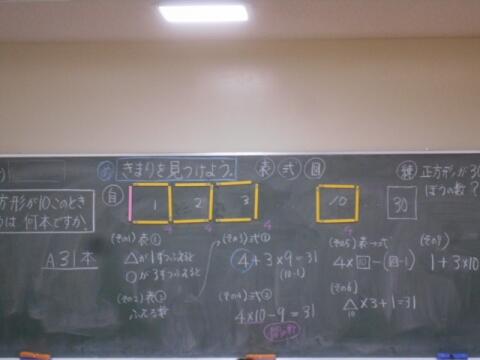 め きまりを見つけよう。 表 式 図
方形が10このとき
は 何本ですか、
A 31本
自 1 2 3 10
4 4 4 4
(その1) 表①
△が1ずつふえると
○が3ずつふえると
(その2) 表②
ふえる数
(その3) 式①
4+3×9=31
(10-1)
(その4) 式②
4×10-9=31
(その5) 表→式
(その6)
△×3+1=31
10
(その7)
1+3×10
練 正方形が30
ぼうの数?
30